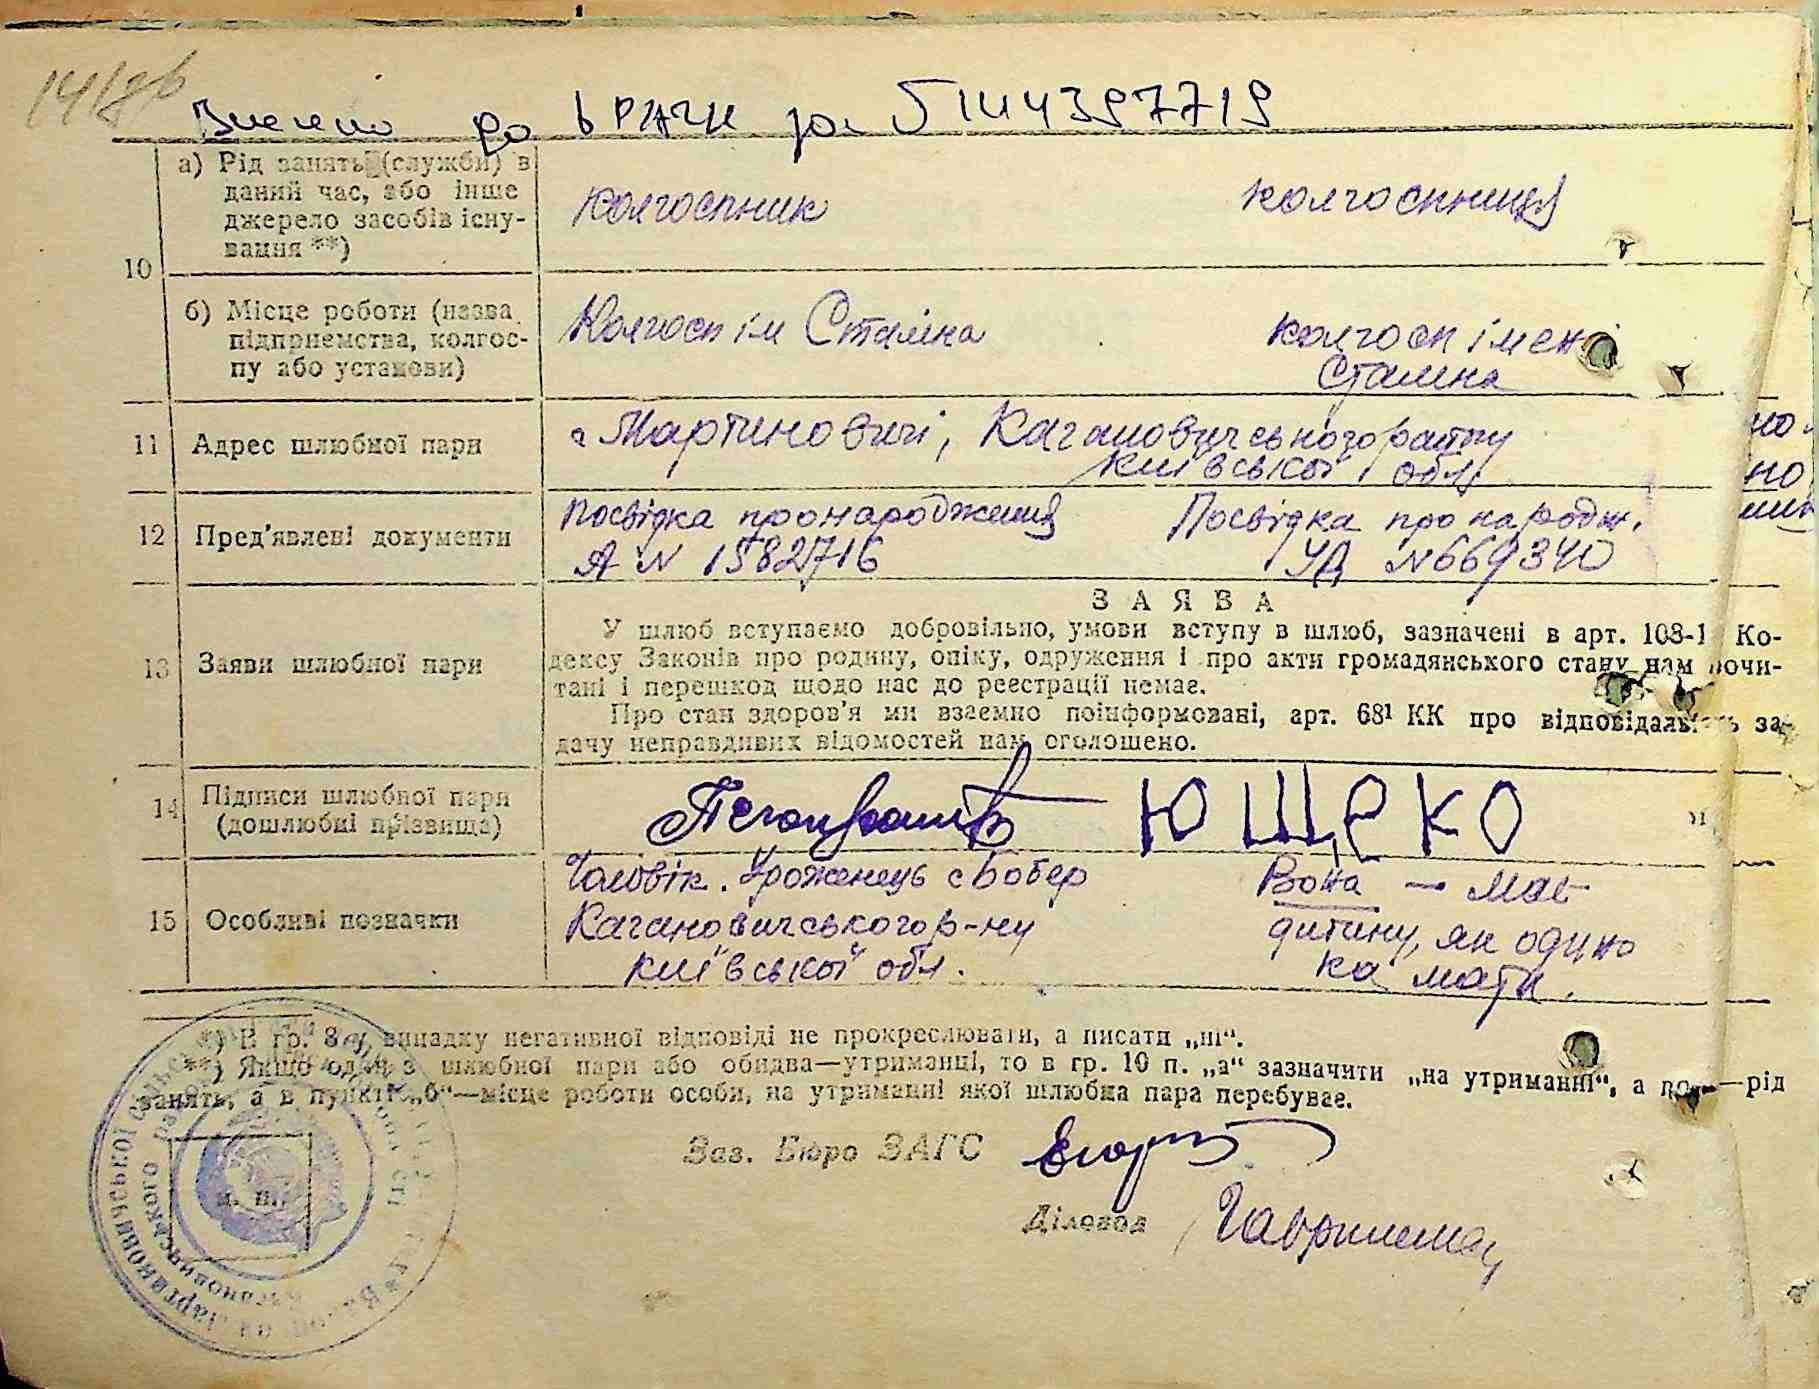 Внесено до ДРАЦС за
а) Рід занять (служби) в
даний час, або інше
джерело засобів існу-
вання **)
колгоспник
колгоспниця
10
б) Місце роботи (назва
підприємства, колгос-
пу або установи)
Колгосп ім Сталіна
колгосп імені
Сталіна
11 Адрес шлюбної пари
с Мартиновичі, Кагановичського району
Київської обл
12 Пред'явлені документи
Посвідка про народження
А N 1582716
Посвідка про народж.
УД N 669340
ЗАЯВА
13 Заяви шлюбної пари
У шлюб вступаємо добровільно, умови вступу в шлюб, зазначені в арт. 108-1 Ко-
дексу Законів про родину, опіку, одруження і про акти громадянського стану нам почи-
тані і перешкод щодо нас до реєстрації немає.
Про стан здоров'я ми взаємно поінформовані, арт. 68¹ КК про відповідальність за
дачу неправдивих відомостей нам оголошено.
14 Підписи шлюбної пари
(дошлюбні прізвища)
ЮЩЕКО
15 Особливі позначки
Чоловік. Уроженець с Бобер
Кагановичського р-ну
Київської обл.
Вона — має
дитину, як одино
ка мати.
*) В гр. 8 у випадку негативної відповіді не прокреслювати, а писати „ні“.
**) Якщо один з шлюбної пари або обидва—утриманці, то в гр. 10 п. „а“ зазначити „на утриманні“, а —рід
занять, а в пункті „б“—місце роботи особи, на утриманні якої шлюбна пара перебуває.
Зав. Бюро ЗАГС
Діловод
м. п.